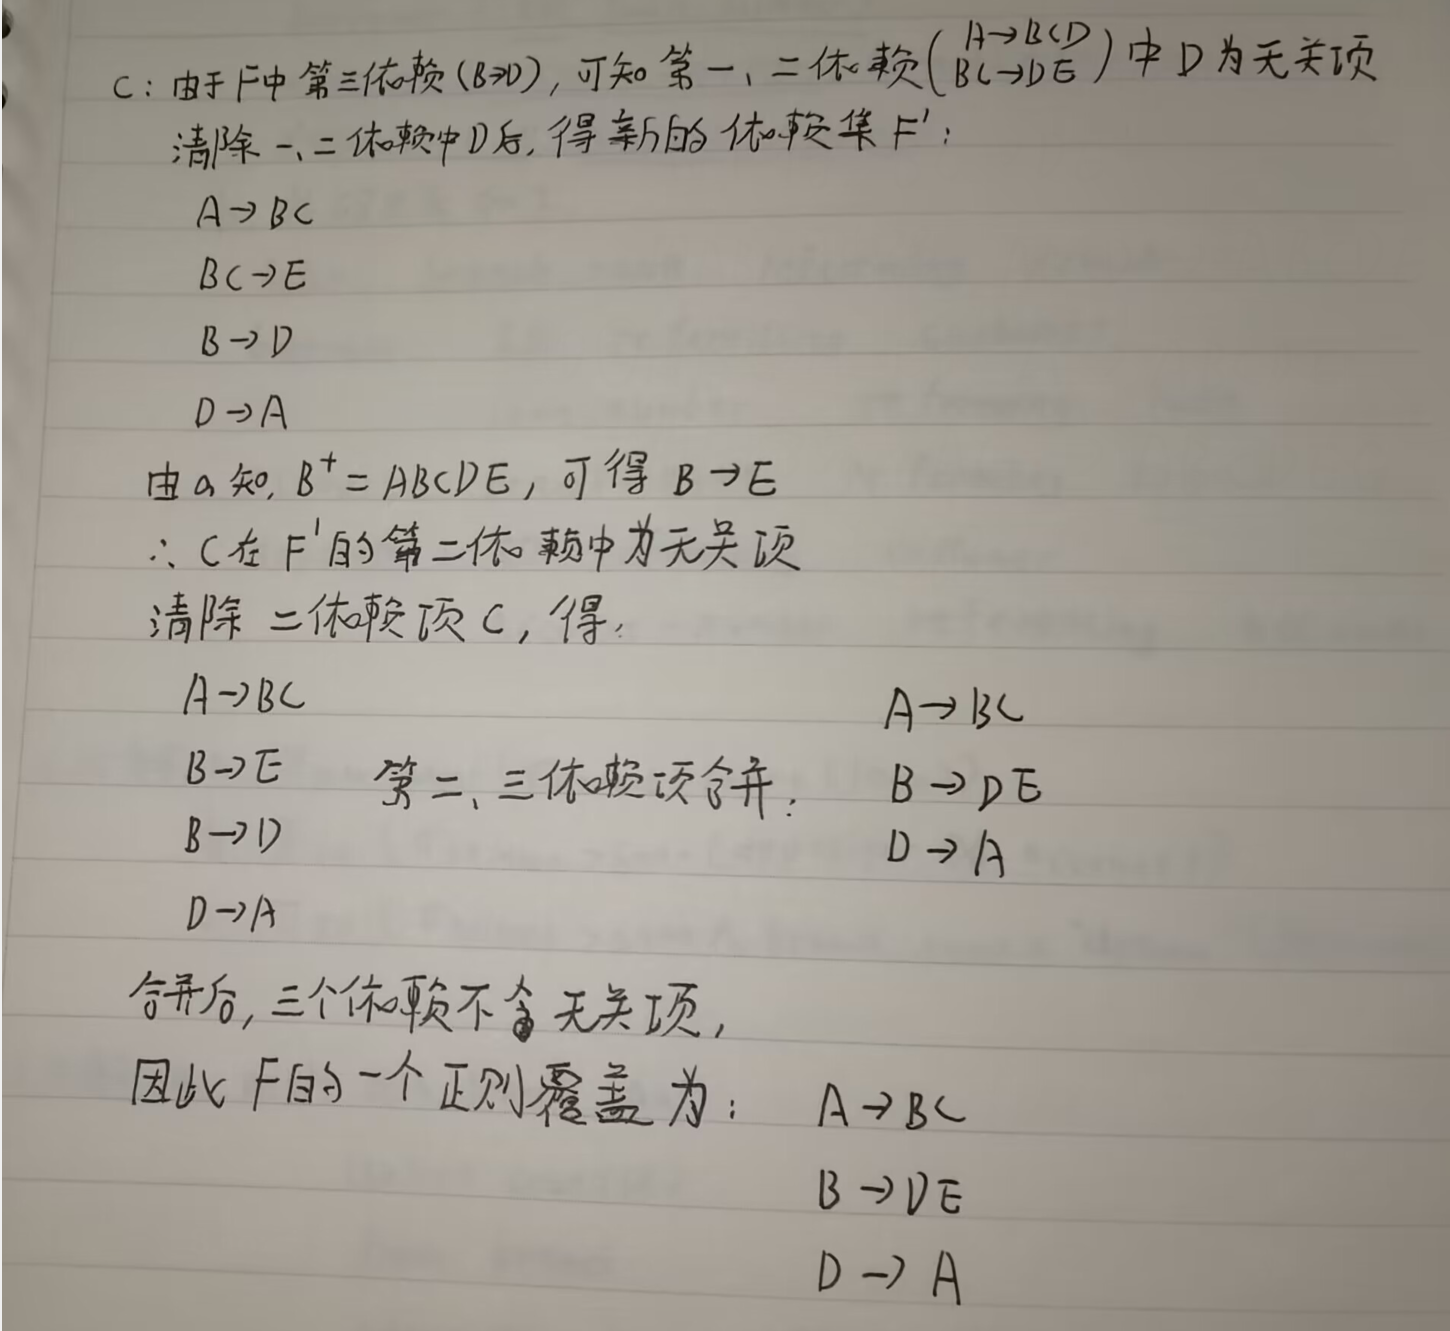 C：由于F中第三依赖(B→D)，可知第一、二依赖(A→BCD BC→DE)中D为无关项
清除一、二依赖中D后，得新的依赖集F'：
A→BC
BC→E
B→D
D→A
由a知，B⁺=ABCDE，可得B→E
∴C在F'的第二依赖中为无关项
清除二依赖项C，得：
A→BC
B→E
B→D
D→A
第二、三依赖项合并：
A→BC
B→DE
D→A
合并后，三个依赖不含无关项，
因此F的一个正则覆盖为：
A→BC
B→DE
D→A